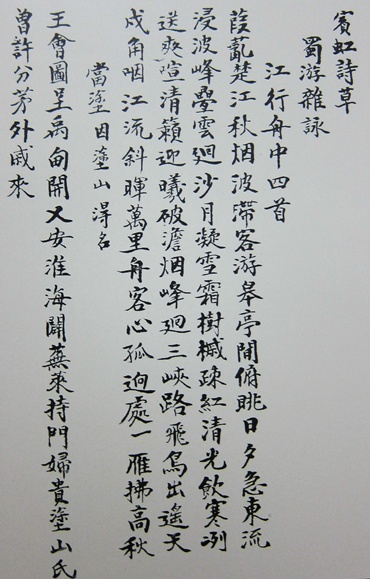 賓虹詩草
蜀游雜詠
江行舟中四首
葭菼楚江秋烟波滯客游皋亭閒俯眺日夕急東流
浸波峰疊雲迴沙月凝雪霜樹槭疎紅清光飲寒冽
送爽喧清籟迎曦破澹烟峰迴三峽路飛鳥出遙天
戍角咽江流斜暉萬里舟客心孤迥處一雁拂高秋
當塗因塗山得名
王會圖呈禹甸開乂安淮海闢蕪萊持門婦貴塗山氏
曾許分茅外戚來